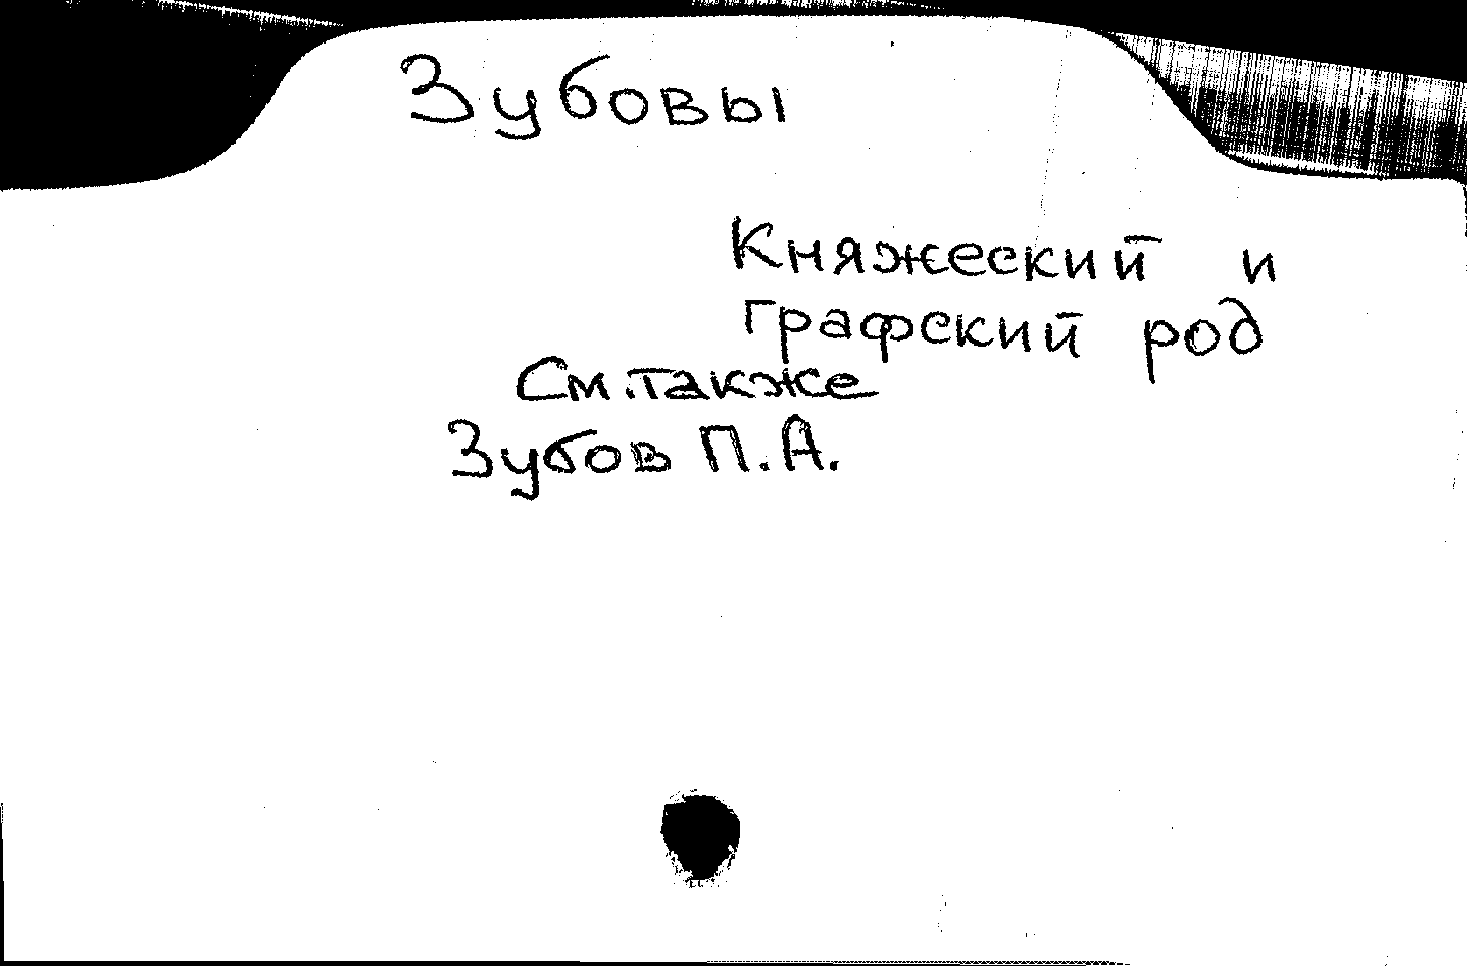 Зубовы
Княжеский и
графский род
См. также
Зубов П.А.